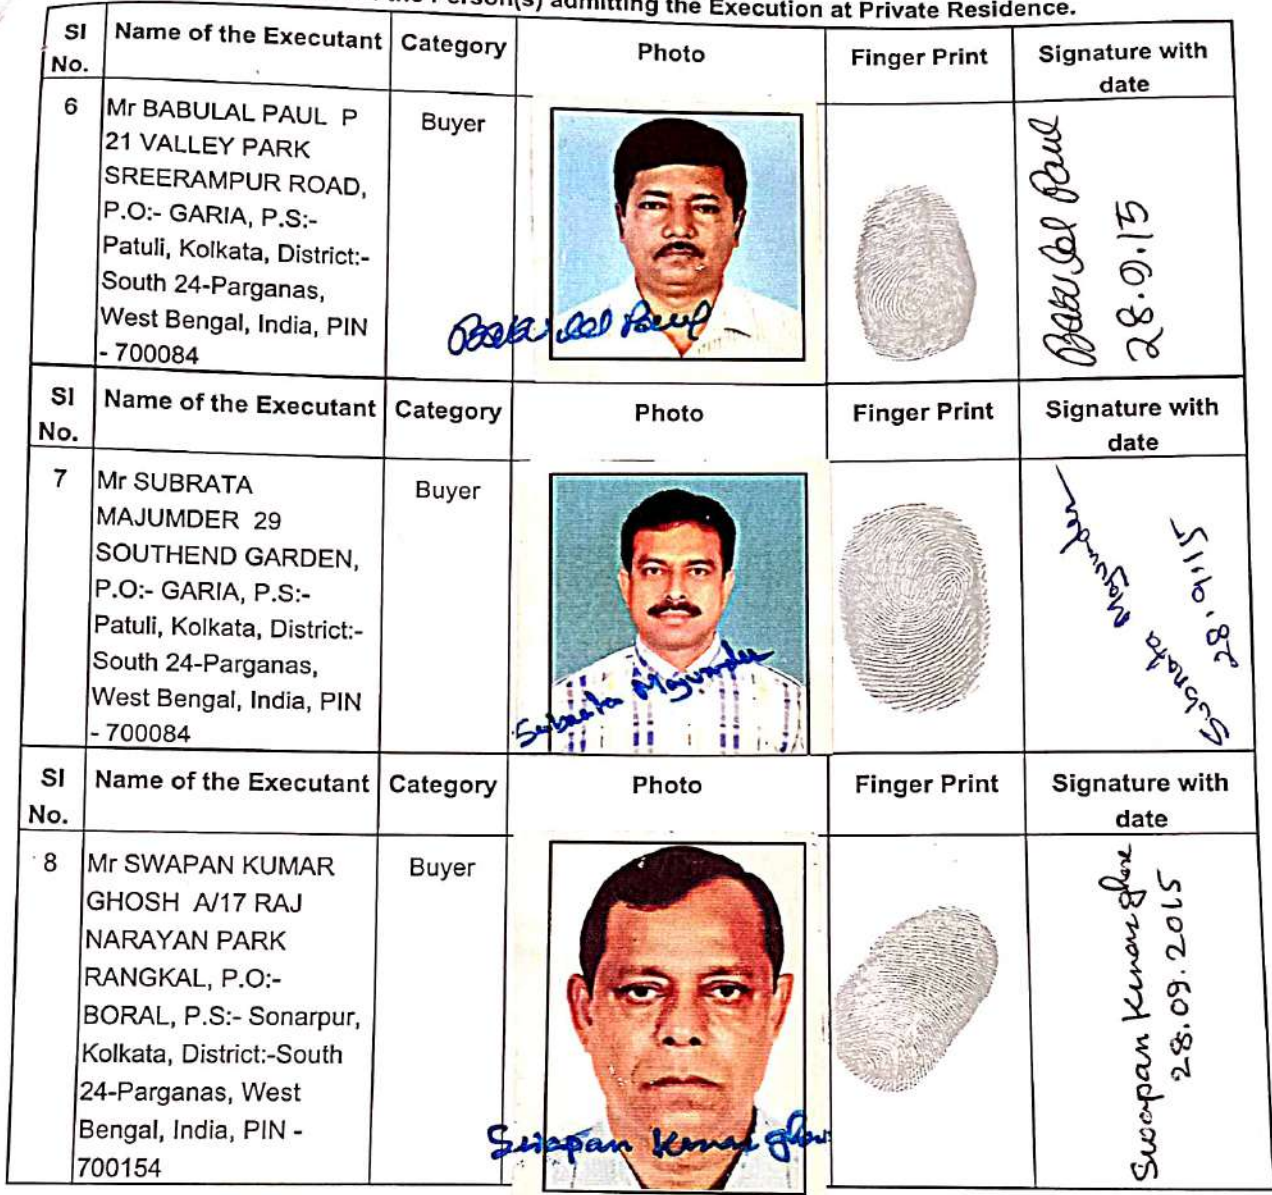 the Person(s) admitting the Execution at Private Residence.
Sl No. Name of the Executant Category Photo Finger Print Signature with date
6
Mr BABULAL PAUL P
21 VALLEY PARK
SREERAMPUR ROAD,
P.O:- GARIA, P.S:-
Patuli, Kolkata, District:-
South 24-Parganas,
West Bengal, India, PIN
- 700084
Buyer
Babulal Paul
Babulal Paul
28.9.15
Sl No. Name of the Executant Category Photo Finger Print Signature with date
7
Mr SUBRATA
MAJUMDER 29
SOUTHEND GARDEN,
P.O:- GARIA, P.S:-
Patuli, Kolkata, District:-
South 24-Parganas,
West Bengal, India, PIN
- 700084
Buyer
Subrata Majumder
Subrata Majumder
28.9.15
Sl No. Name of the Executant Category Photo Finger Print Signature with date
8
Mr SWAPAN KUMAR
GHOSH A/17 RAJ
NARAYAN PARK
RANGKAL, P.O:-
BORAL, P.S:- Sonarpur,
Kolkata, District:-South
24-Parganas, West
Bengal, India, PIN -
700154
Buyer
Swapan Kumar Ghose
Swapan Kumar Ghose
28.09.2015